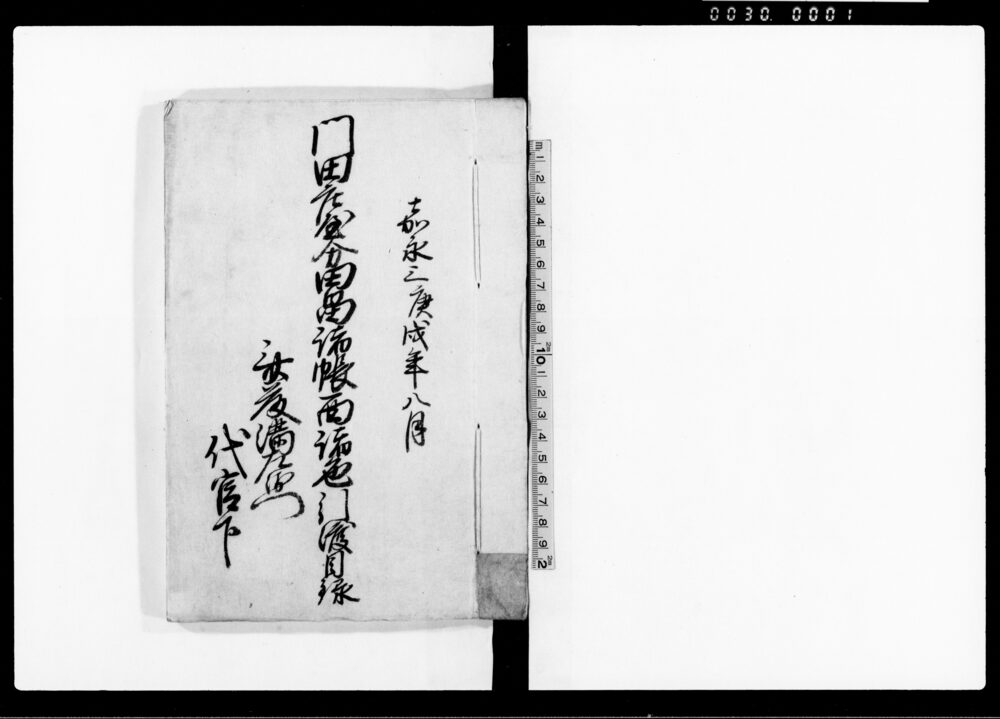 0030. 0001
嘉永三庚戌年八月
門田庄屋分田畠諸帳面諸色引渡目録
安養満左衛門
代官下
m 1 2 3 4 5 6 7 8 9 10 1 2 3 4 5 6 7 8 9 2